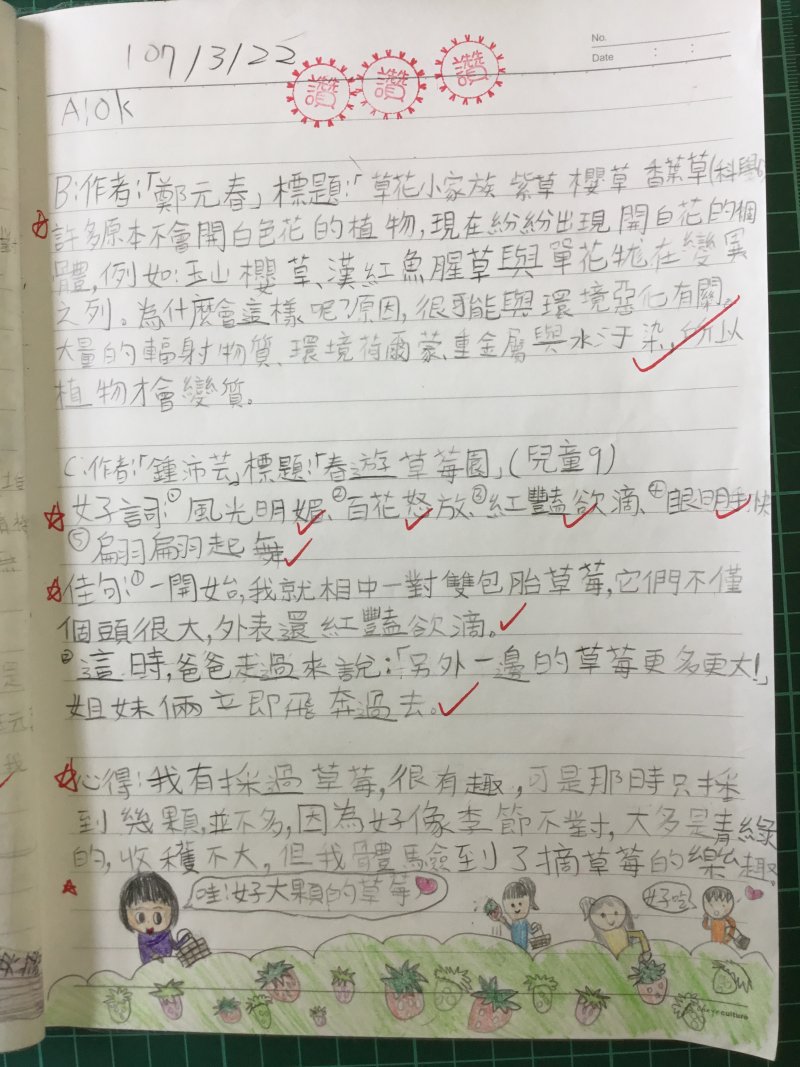 107/3/22
No.
Date : :
讚 讚 讚
A:ok
B:作者:「鄭元春」標題:「草花小家族 紫草 櫻草 香葉草(科學
許多原本不會開白色花的植物,現在紛紛出現開白花的個
體,例如:玉山櫻草、漢紅魚腥草與單花牻在變異
之列。為什麼會這樣呢?原因,很可能與環境惡化有關。
大量的輻射物質、環境荷爾蒙、重金屬與水汙染,所以
植物才會變質。
C:作者:「鍾沛芸」標題:「春遊草莓園」(兒童9)
好詞:①風光明媚、②百花怒放、③紅豔欲滴、④眼明手快
⑤翩翩起舞
佳句:①一開始,我就相中一對雙包胎草莓,它們不僅
個頭很大,外表還紅豔欲滴。
②這時,爸爸走過來說:「另外一邊的草莓更多更大!」
姐妹倆立即飛奔過去。
心得:我有採過草莓,很有趣,可是那時只採
到幾顆,並不多,因為好像季節不對,大多是青綠
的,收穫不大,但我體驗到了摘草莓的樂趣。
哇!好大顆的草莓
好吃
culture